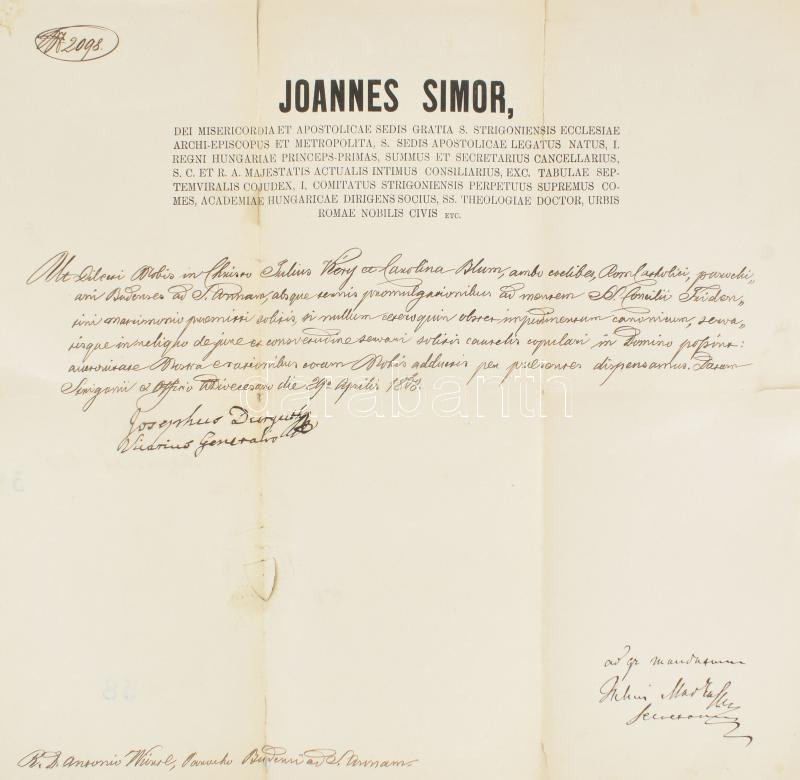 Nr 2098.
JOANNES SIMOR,
DEI MISERICORDIA ET APOSTOLICAE SEDIS GRATIA S. STRIGONIENSIS ECCLESIAE
ARCHI-EPISCOPUS ET METROPOLITA, S. SEDIS APOSTOLICAE LEGATUS NATUS, I.
REGNI HUNGARIAE PRINCEPS-PRIMAS, SUMMUS ET SECRETARIUS CANCELLARIUS,
S. C. ET R. A. MAJESTATIS ACTUALIS INTIMUS CONSILIARIUS, EXC. TABULAE SEP-
TEMVIRALIS COJUDEX, I. COMITATUS STRIGONIENSIS PERPETUUS SUPREMUS CO-
MES, ACADEMIAE HUNGARICAE DIRIGENS SOCIUS, SS. THEOLOGIAE DOCTOR, URBIS
ROMAE NOBILIS CIVIS ETC.
Ut Dilecti Nobis in Christo Julius Kéry et Carolina Blum, ambo coelibes, Rom. Catholici, parochi„
ani Budenses ad S. Annam, absque ternis promulgationibus ad mentem SS. Concilii Triden„
tini matrimonio praemitti solitis, si nullum ceteroquin obstet impedimentum canonicum, serva„
tisque in reliquo de jure et consvetudine servari solitis cautelis copulari in Domino possint:
autoritate Nostra e rationibus coram Nobis adductis per praesentes dispensamus. Datum
Strigonii ex Officio Dioecesano die 29a Aprilis
Josephus
Vicarius Generalis
ad gr mandatum
Julius
Secretarius
R. D. Antonio Parocho Budensi ad S. Annam.
darabanth